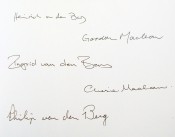 van den Berg
Gordon Maclean
Ingrid van den Berg
Maclean
Philip van den Berg